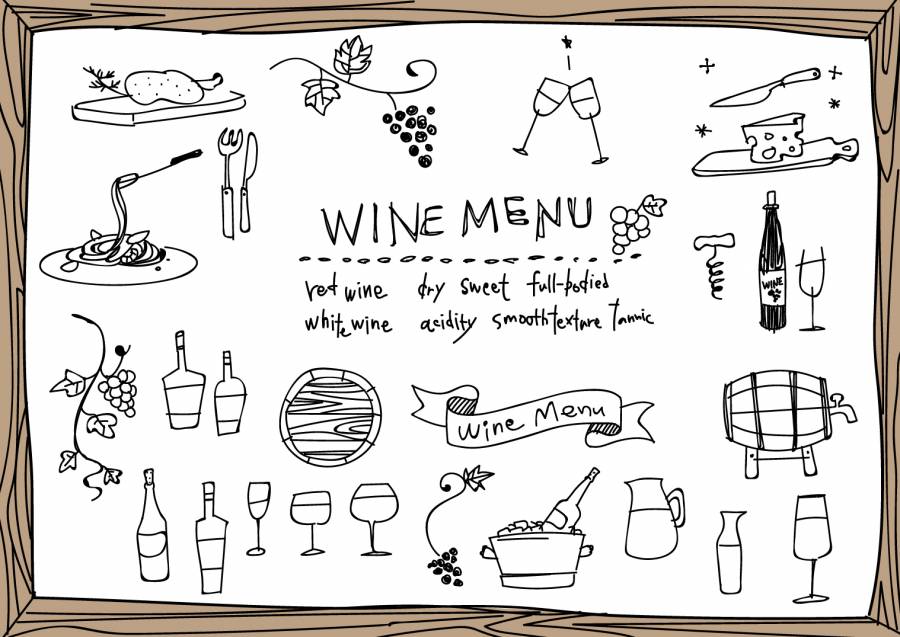 WINE MENU
red wine dry sweet full-bodied
white wine acidity smooth texture Tannic
WINE
Wine Menu